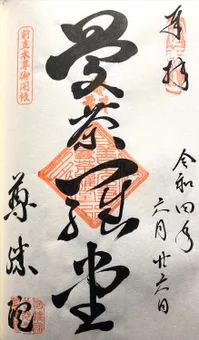 奉拝
令和四年
六月廿六日
曼荼羅堂
前立本尊御開帳
尊勝院